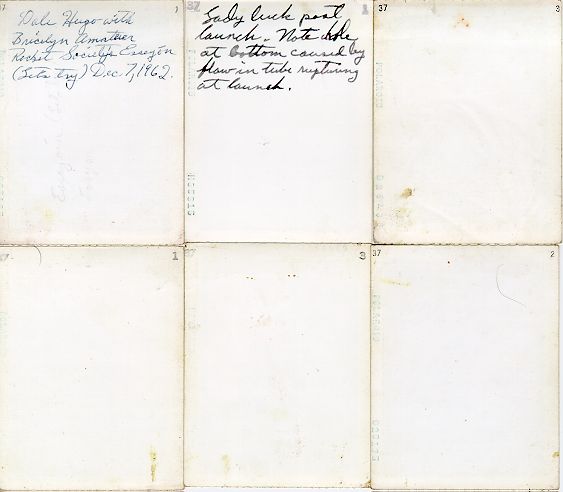 Dale Hugo with
Bricelyn Amateur
Rocket Society's Esregon
(Lets try) Dec 7, 1962.
37
1
Lady luck post
launch. Note hole
at bottom caused by
flaw in tube rupturing
at launch.
37
3
1
3
37
2